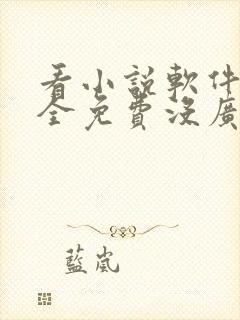 看小說軟件
全免費沒廣
藍嵐